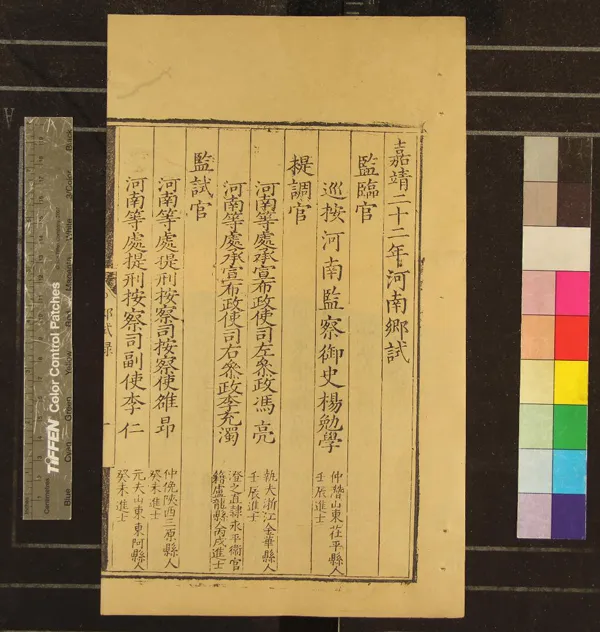 嘉靖二十二年河南鄉試
監臨官
巡按河南監察御史楊勉學
仲哲山東茌平縣人
壬辰進士
提調官
河南等處承宣布政使司左叅政馮亮
執夫浙江金華縣人
壬辰進士
河南等處承宣布政使司右叅政李充濁
澄之直隸永平衛官
籍盧龍縣丙戌進士
監試官
河南等處提刑按察司按察使雒昂
仲俛陝西三原縣人
癸未進士
河南等處提刑按察司副使李仁
元夫山東東阿縣人
癸未進士
試錄
一
TIFFEN Color Control Patches
Centimetres
Blue
Cyan
Green
Yellow
Red
Magenta
White
3/Color
Black